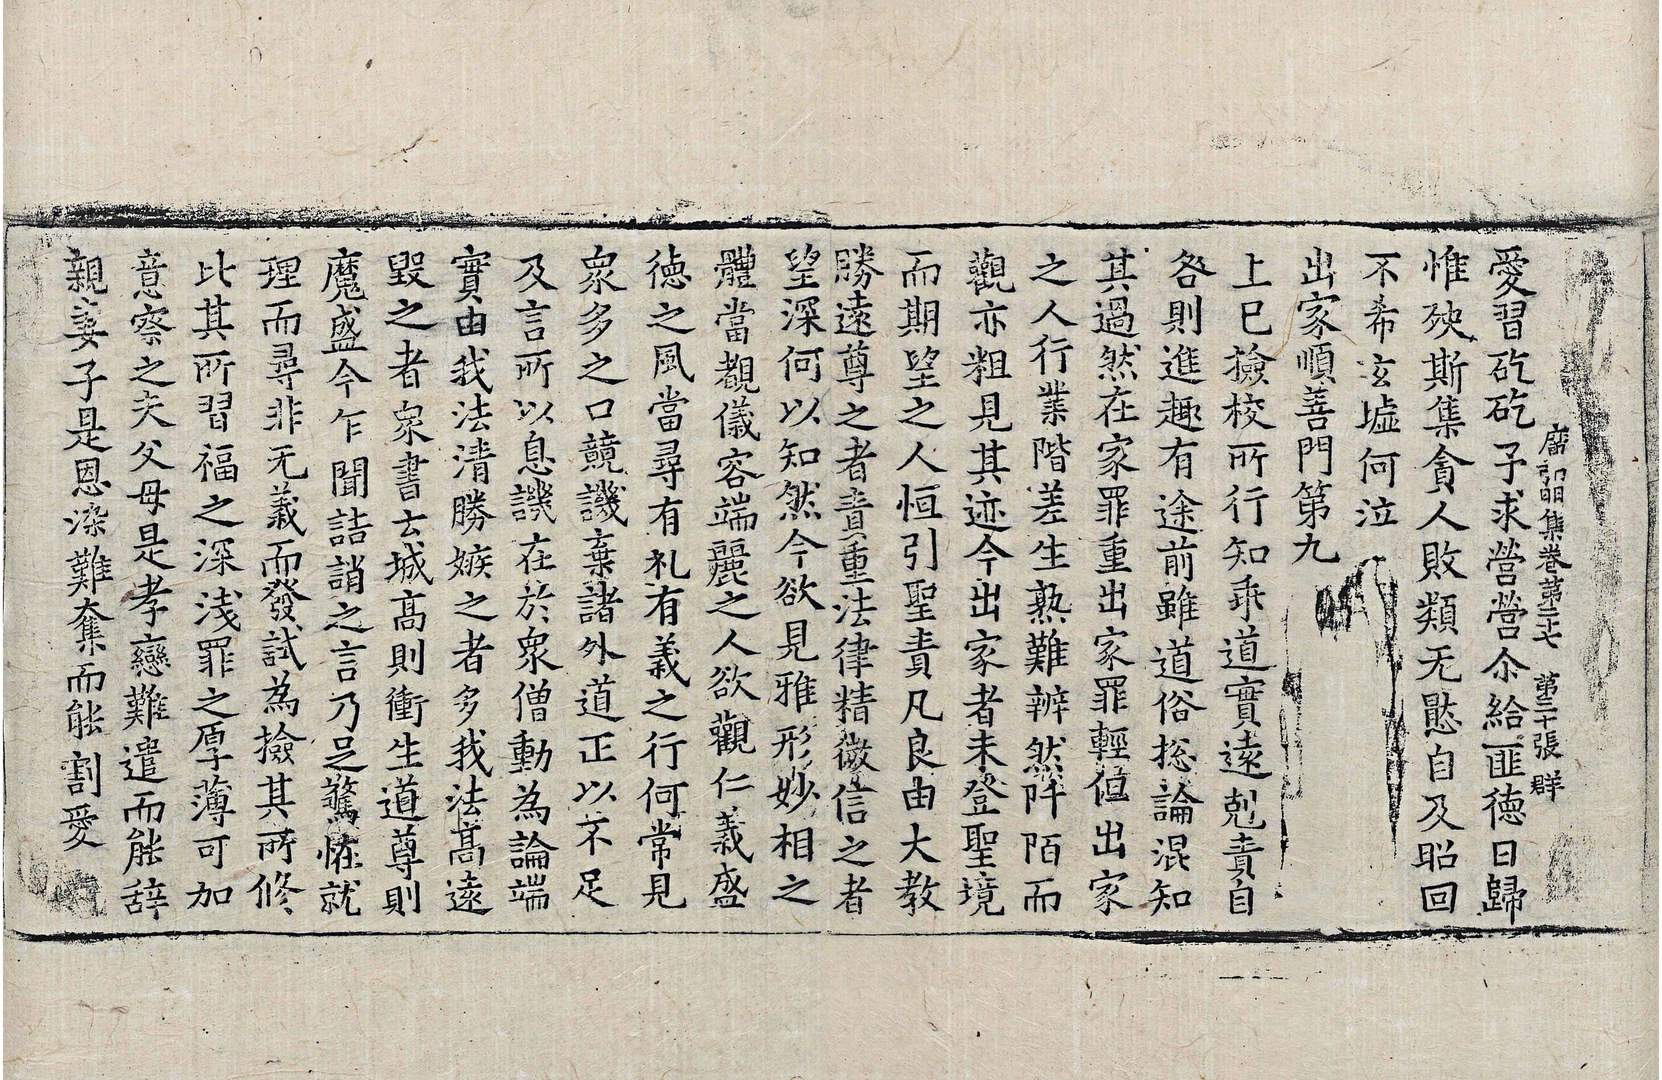 廣弘明集卷第二十七 第三十張 群
愛習矻矻予求營營尒給匪德日歸
惟殃斯集貪人敗類无慙自及昭回
不希玄墟何泣
出家順善門第九
上已撿校所行知乖道實遠剋責自
咎則進趣有途前雖道俗捴論混知
其過然在家罪重出家罪輕但出家
之人行業階差生熟難辨然阡陌而
觀亦粗見其迹今出家者未登聖境
而期望之人恒引聖責凡良由大教
勝遠尊之者責重法律精微信之者
望深何以知然今欲見雅形妙相之
體當觀儀容端麗之人欲觀仁義盛
德之風當尋有礼有義之行何常見
衆多之口競譏棄諸外道正以不足
及言所以息譏在於衆僧動為論端
實由我法清勝嫉之者多我法高遠
毀之者衆書云城高則衝生道尊則
魔盛今乍聞詰誚之言乃足驚恠就
理而尋非无義而發試為撿其所修
比其所習福之深淺罪之厚薄可加
意察之夫父母是孝戀難遣而能辞
親妻子是恩染難奪而能割愛